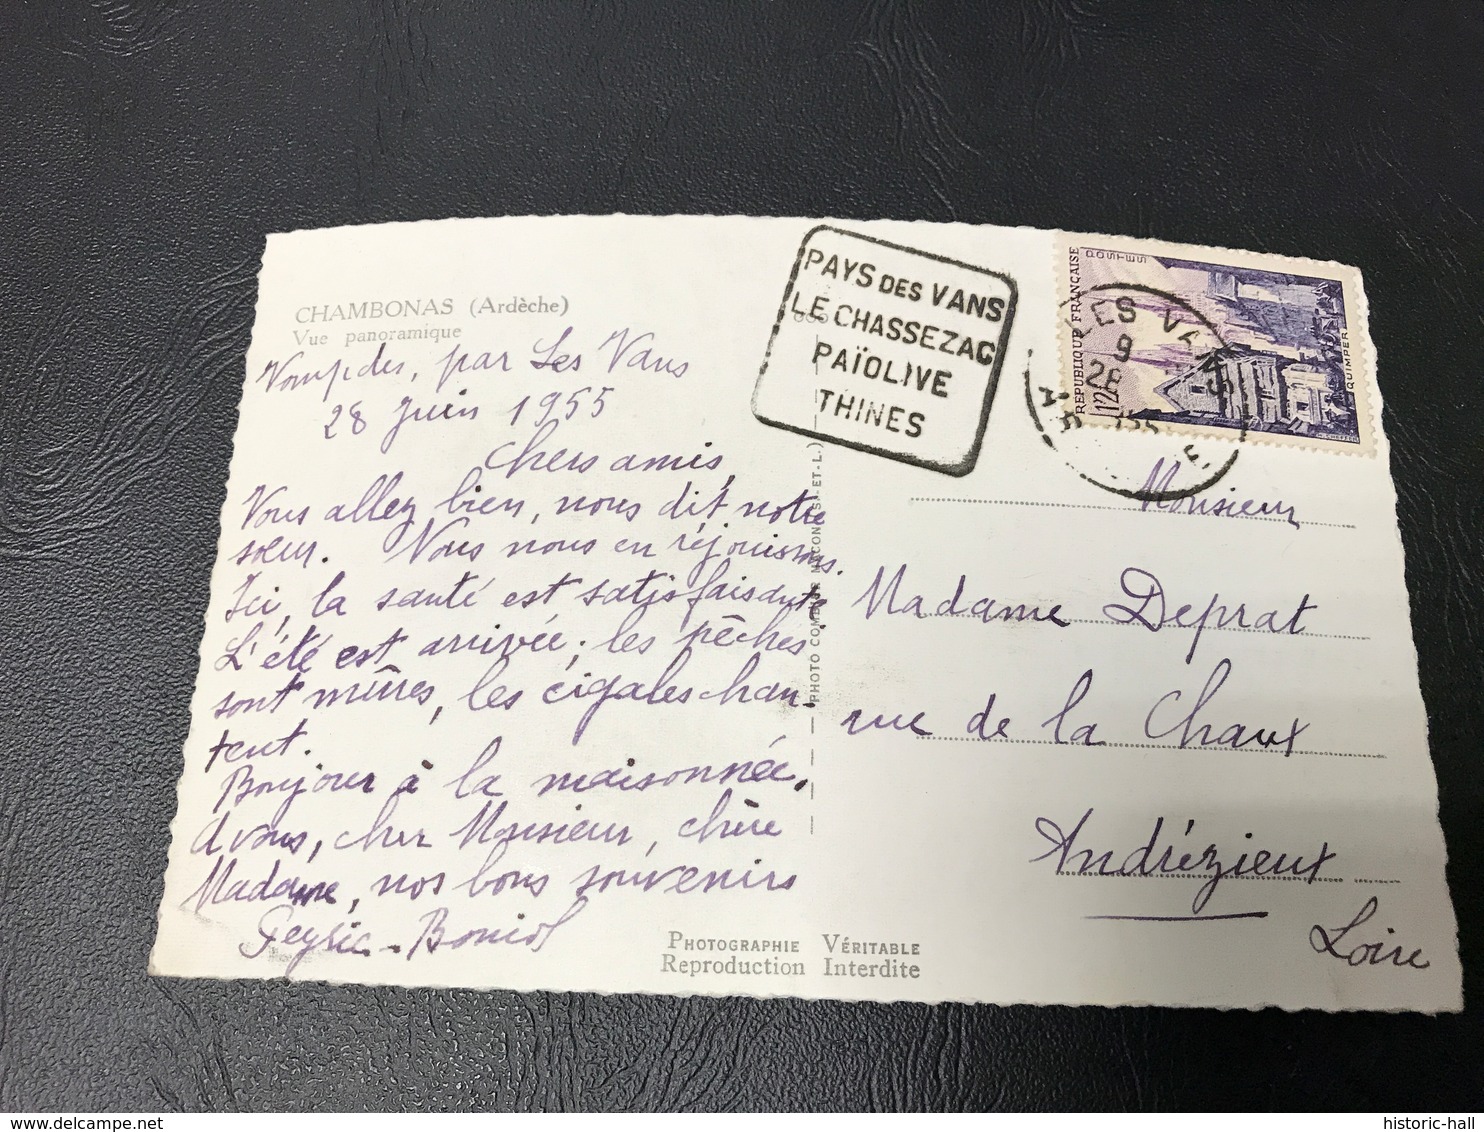 CHAMBONAS (Ardèche)
Vue panoramique
par Les Vans
28 Juin 1955
Chers amis,
Vous allez bien, nous dit notre
sœur. Nous nous en réjouissons.
Ici, la santé est satisfaisante
L'été est arrivée; les pêches
sont mûres, les cigales chan-
tent.
Bonjour à la maisonnée.
A vous, cher Monsieur, chère
Madame, nos bons souvenirs
PHOTOGRAPHIE VÉRITABLE
Reproduction Interdite
PHOTO COMBIER MACON (S.-ET-L.)
PAYS DES VANS
LE CHASSEZAC
PAÏOLIVE
THINES
LES VANS
9
28
REPUBLIQUE FRANÇAISE
POSTES
12F
QUIMPER
Monsieur
Madame Deprat
rue de la Chaux
Andrézieux
Loire
historic-hall